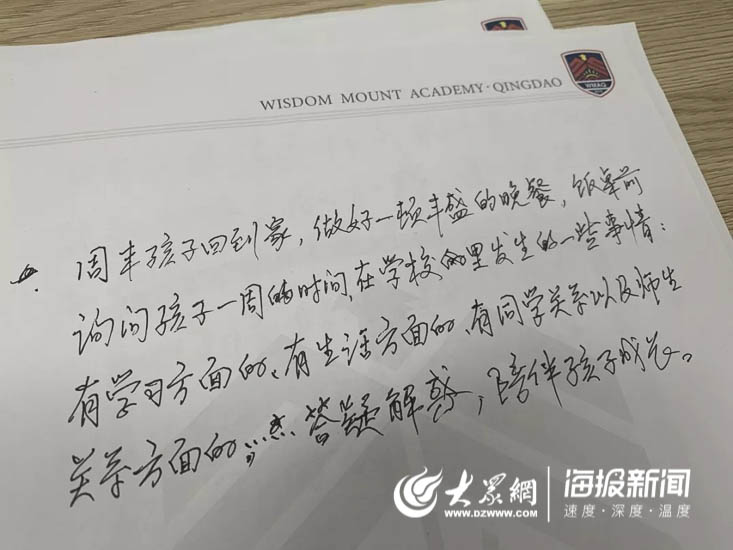 WISDOM MOUNT ACADEMY·QINGDAO
WMAQ
周末孩子回到家，做好一顿丰盛的晚餐，饭桌前
询问孩子一周的时间，在学校里发生的一些事情：
有学习方面的、有生活方面的、有同学关系以及师生
关系方面的……答疑解惑，陪伴孩子成长。
大众網
WWW.DZWWW.COM
海报新闻
速度·深度·温度